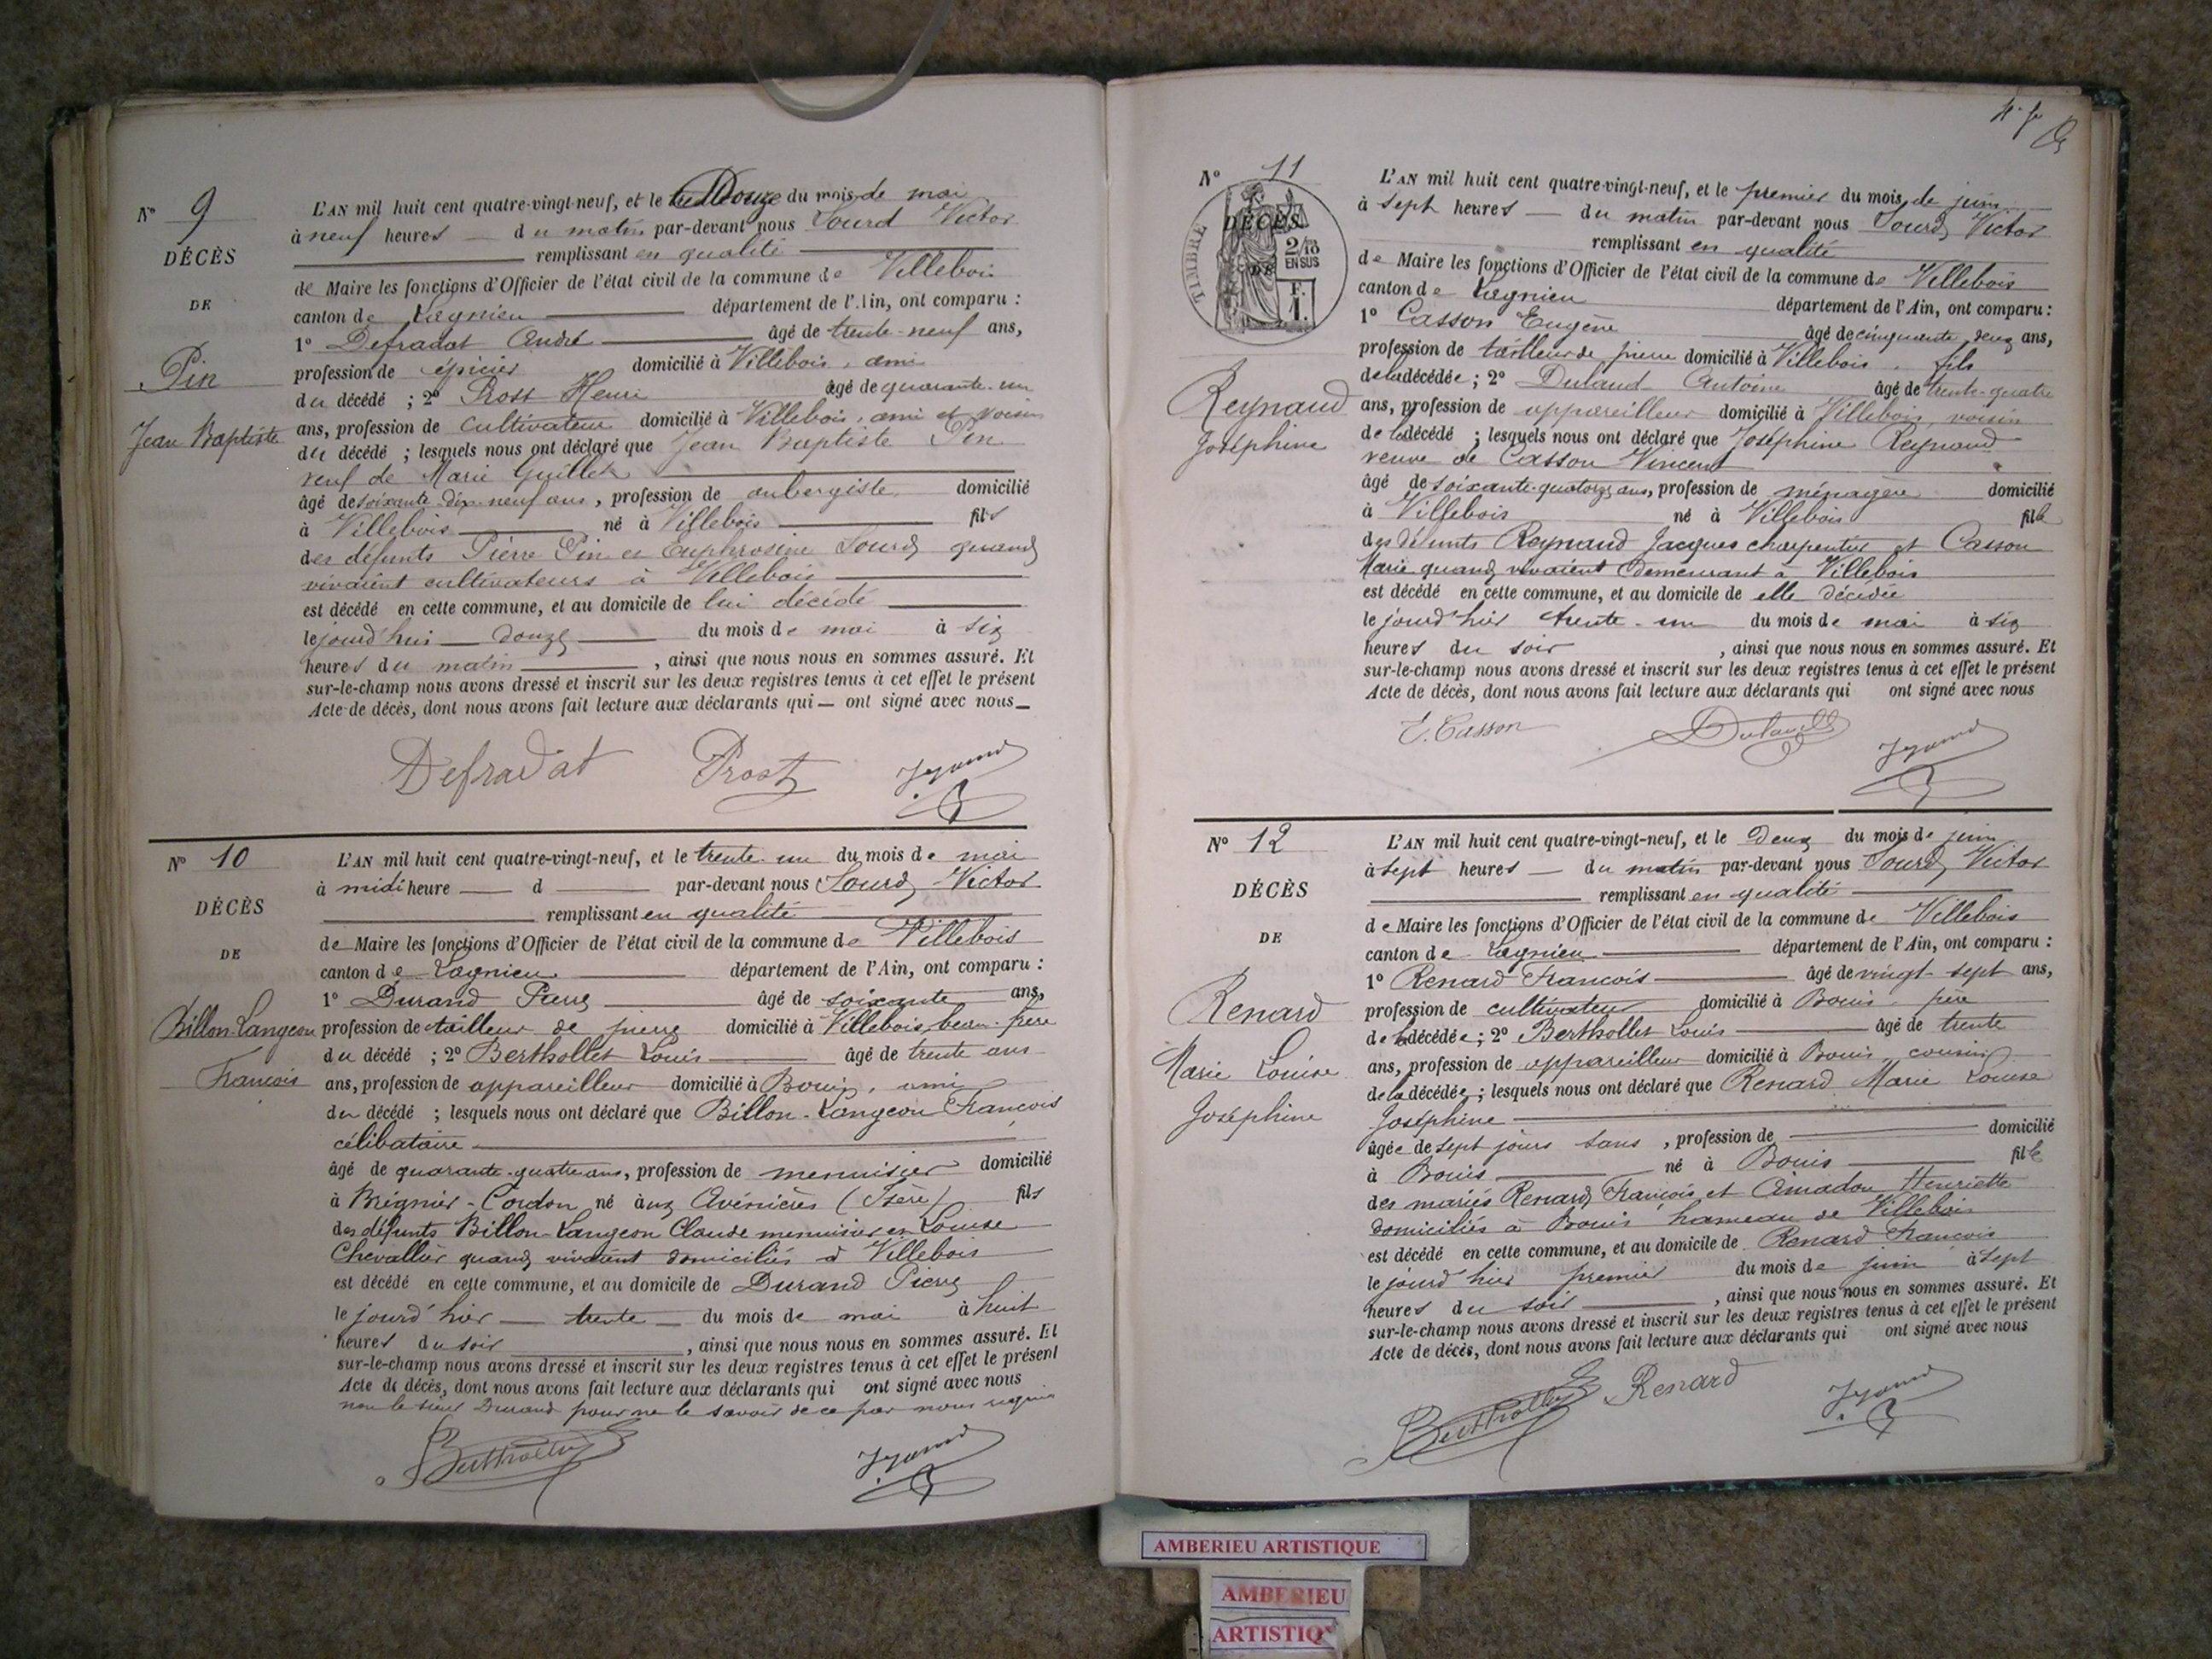 N° 9
DÉCÈS
DE
Pin
Jean Baptiste
L'AN mil huit cent quatre-vingt-neuf, et le Douze du mois de mai
à neuf heures du matin par-devant nous Sourd Victor
remplissant en qualité
de Maire les fonctions d'Officier de l'état civil de la commune de Villebois
canton de Lagnieu département de l'Ain, ont comparu :
1° Defradat André âgé de trente-neuf ans,
profession de épicier domicilié à Villebois, ami
du décédé ; 2° Prost Henri âgé de quarante-un
ans, profession de cultivateur domicilié à Villebois, ami et voisin
du décédé ; lesquels nous ont déclaré que Jean Baptiste Pin
veuf de Marie Guillet
âgé de soixante-dix-neuf ans, profession de aubergiste domicilié
à Villebois né à Villebois fils
des défunts Pierre Pin et Euphrosine Sourd quand
vivaient cultivateurs à Villebois
est décédé en cette commune, et au domicile de lui décédé
le jourd'hui douze du mois de mai à six
heures du matin, ainsi que nous nous en sommes assuré. Et
sur-le-champ nous avons dressé et inscrit sur les deux registres tenus à cet effet le présent
Acte de décès, dont nous avons fait lecture aux déclarants qui ont signé avec nous
Defradat Prost
N° 10
DÉCÈS
DE
Billon-Langeon
François
L'AN mil huit cent quatre-vingt-neuf, et le trente-un du mois de mai
à midi heure d par-devant nous Sourd Victor
remplissant en qualité
de Maire les fonctions d'Officier de l'état civil de la commune de Villebois
canton de Lagnieu département de l'Ain, ont comparu :
1° Durand Pierre âgé de soixante ans,
profession de tailleur de pierre domicilié à Villebois, beau-frère
du décédé ; 2° Berthollet Louis âgé de trente ans
ans, profession de appareilleur domicilié à Bouis, ami
du décédé ; lesquels nous ont déclaré que Billon-Langeon François
célibataire
âgé de quarante-quatre ans, profession de menuisier domicilié
à Brégnier-Cordon né aux Avénières (Isère) fils
des défunts Billon-Langeon Claude menuisier et Louise
Chevallier quand vivaient domiciliés à Villebois
est décédé en cette commune, et au domicile de Durand Pierre
le jourd'hier trente du mois de mai à huit
heures du soir, ainsi que nous nous en sommes assuré. Et
sur-le-champ nous avons dressé et inscrit sur les deux registres tenus à cet effet le présent
Acte de décès, dont nous avons fait lecture aux déclarants qui ont signé avec nous
non le sieur Durand pour ne le savoir de ce par nous requis
Berthollet
N° 11
TIMBRE
DÉCÈS
2/10
EN SUS
DE
F.
1.
Reynaud
Joséphine
L'AN mil huit cent quatre-vingt-neuf, et le premier du mois de juin
à sept heures du matin par-devant nous Sourd Victor
remplissant en qualité
de Maire les fonctions d'Officier de l'état civil de la commune de Villebois
canton de Lagnieu département de l'Ain, ont comparu :
1° Casson Eugène âgé de cinquante deux ans,
profession de tailleur de pierre domicilié à Villebois, fils
de la décédée ; 2° Dulaud Antoine âgé de trente-quatre
ans, profession de appareilleur domicilié à Villebois, voisin
de la décédé ; lesquels nous ont déclaré que Joséphine Reynaud
veuve de Casson Vincent
âgé de soixante-quatorze ans, profession de ménagère domicilié
à Villebois né à Villebois fille
des défunts Reynaud Jacques charpentier et Casson
Marie quand vivaient demeurant à Villebois
est décédé en cette commune, et au domicile de elle décédée
le jourd'hier trente-un du mois de mai à six
heures du soir, ainsi que nous nous en sommes assuré. Et
sur-le-champ nous avons dressé et inscrit sur les deux registres tenus à cet effet le présent
Acte de décès, dont nous avons fait lecture aux déclarants qui ont signé avec nous
E. Casson Dulaud
N° 12
DÉCÈS
DE
Renard
Marie Louise
Joséphine
L'AN mil huit cent quatre-vingt-neuf, et le deux du mois de juin
à sept heures du matin par-devant nous Sourd Victor
remplissant en qualité
de Maire les fonctions d'Officier de l'état civil de la commune de Villebois
canton de Lagnieu département de l'Ain, ont comparu :
1° Renard François âgé de vingt-sept ans,
profession de cultivateur domicilié à Bouis, père
de la décédée ; 2° Berthollet Louis âgé de trente
ans, profession de appareilleur domicilié à Bouis, cousin
de la décédée ; lesquels nous ont déclaré que Renard Marie Louise
Joséphine
âgée de sept jours sans, profession de domicilié
à Bouis né à Bouis fille
des mariés Renard François et Amadou Henriette
domiciliés à Bouis hameau de Villebois
est décédé en cette commune, et au domicile de Renard François
le jourd'hier premier du mois de juin à sept
heures du soir, ainsi que nous nous en sommes assuré. Et
sur-le-champ nous avons dressé et inscrit sur les deux registres tenus à cet effet le présent
Acte de décès, dont nous avons fait lecture aux déclarants qui ont signé avec nous
Berthollet Renard
AMBERIEU ARTISTIQUE
AMBERIEU
ARTISTIQ